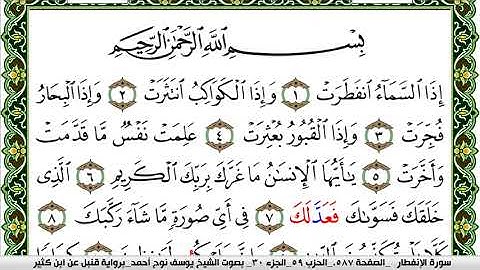 بِسْمِ ٱللَّهِ ٱلرَّحْمَٰنِ ٱلرَّحِيمِ
إِذَا ٱلسَّمَآءُ ٱنفَطَرَتْ ١ وَإِذَا ٱلْكَوَاكِبُ ٱنتَثَرَتْ ٢ وَإِذَا ٱلْبِحَارُ
فُجِّرَتْ ٣ وَإِذَا ٱلْقُبُورُ بُعْثِرَتْ ٤ عَلِمَتْ نَفْسٌ مَّا قَدَّمَتْ
وَأَخَّرَتْ ٥ يَٰٓأَيُّهَا ٱلْإِنسَٰنُ مَا غَرَّكَ بِرَبِّكَ ٱلْكَرِيمِ ٦ ٱلَّذِى
خَلَقَكَ فَسَوَّىٰكَ فَعَدَّلَكَ ٧ فِىٓ أَىِّ صُورَةٍ مَّا شَآءَ رَكَّبَكَ ٨
سورة الإنفطار _الصفحة ٥٨٧_ الحزب ٥٩_ الجزء ٣٠_ بصوت الشيخ يوسف نوح أحمد_ برواية قنبل عن ابن كثير